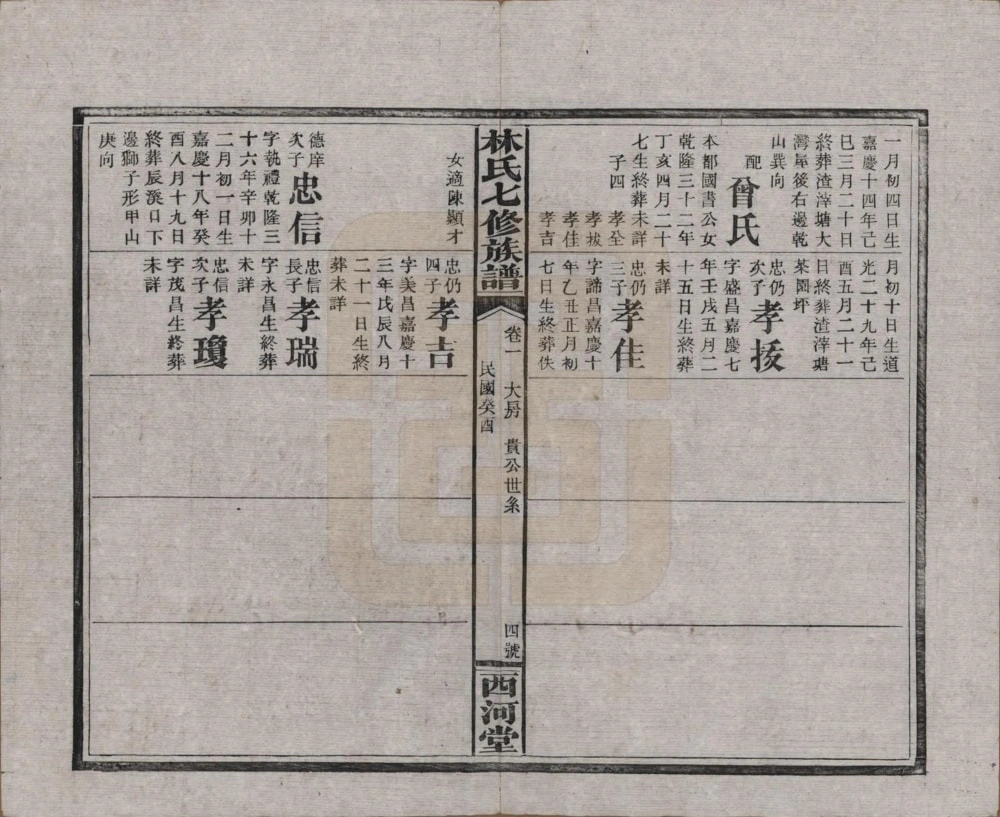 一月初四日生
嘉慶十四年己
巳三月二十日
終葬渣滓塘大
灣屋後右邊乾
山巽向
配曾氏
本都國書公女
乾隆三十二年
丁亥四月二十
七生終葬未詳
子四
孝全
孝拔
孝佳
孝吉
女適陳顯才
德庠次子忠信
字執禮乾隆三
十六年辛卯十
二月初一日生
嘉慶十八年癸
酉八月十九日
終葬辰溪口下
邊獅子形甲山
庚向
月初十日生道
光二十九年己
酉五月二十一
日終葬渣滓塘
茶園坪
忠仍次子孝拔
字盛昌嘉慶七
年壬戌五月二
十五日生終葬
未詳
忠仍三子孝佳
字諦昌嘉慶十
年乙丑正月初
七日生終葬佚
忠仍四子孝吉
字美昌嘉慶十
三年戊辰八月
二十一日生終
葬未詳
忠信長子孝瑞
字永昌生終葬
未詳
忠信次子孝瓊
字茂昌生終葬
未詳
林氏七修族譜
卷一 大房 貴公世系
民國癸酉
四號
西河堂